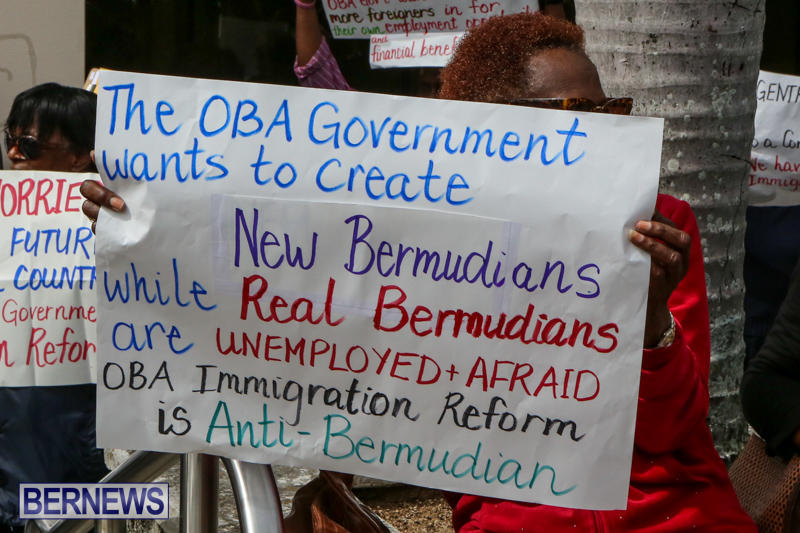 more foreigners in for,
their own employment
and
financial
The OBA Government
wants to Create
New Bermudians
while Real Bermudians
are UNEMPLOYED + AFRAID
OBA Immigration Reform
is Anti-Bermudian
FUTUR
COUNT
Governme
Refor
GENT
a Con
we hav
Immig
BERNEWS